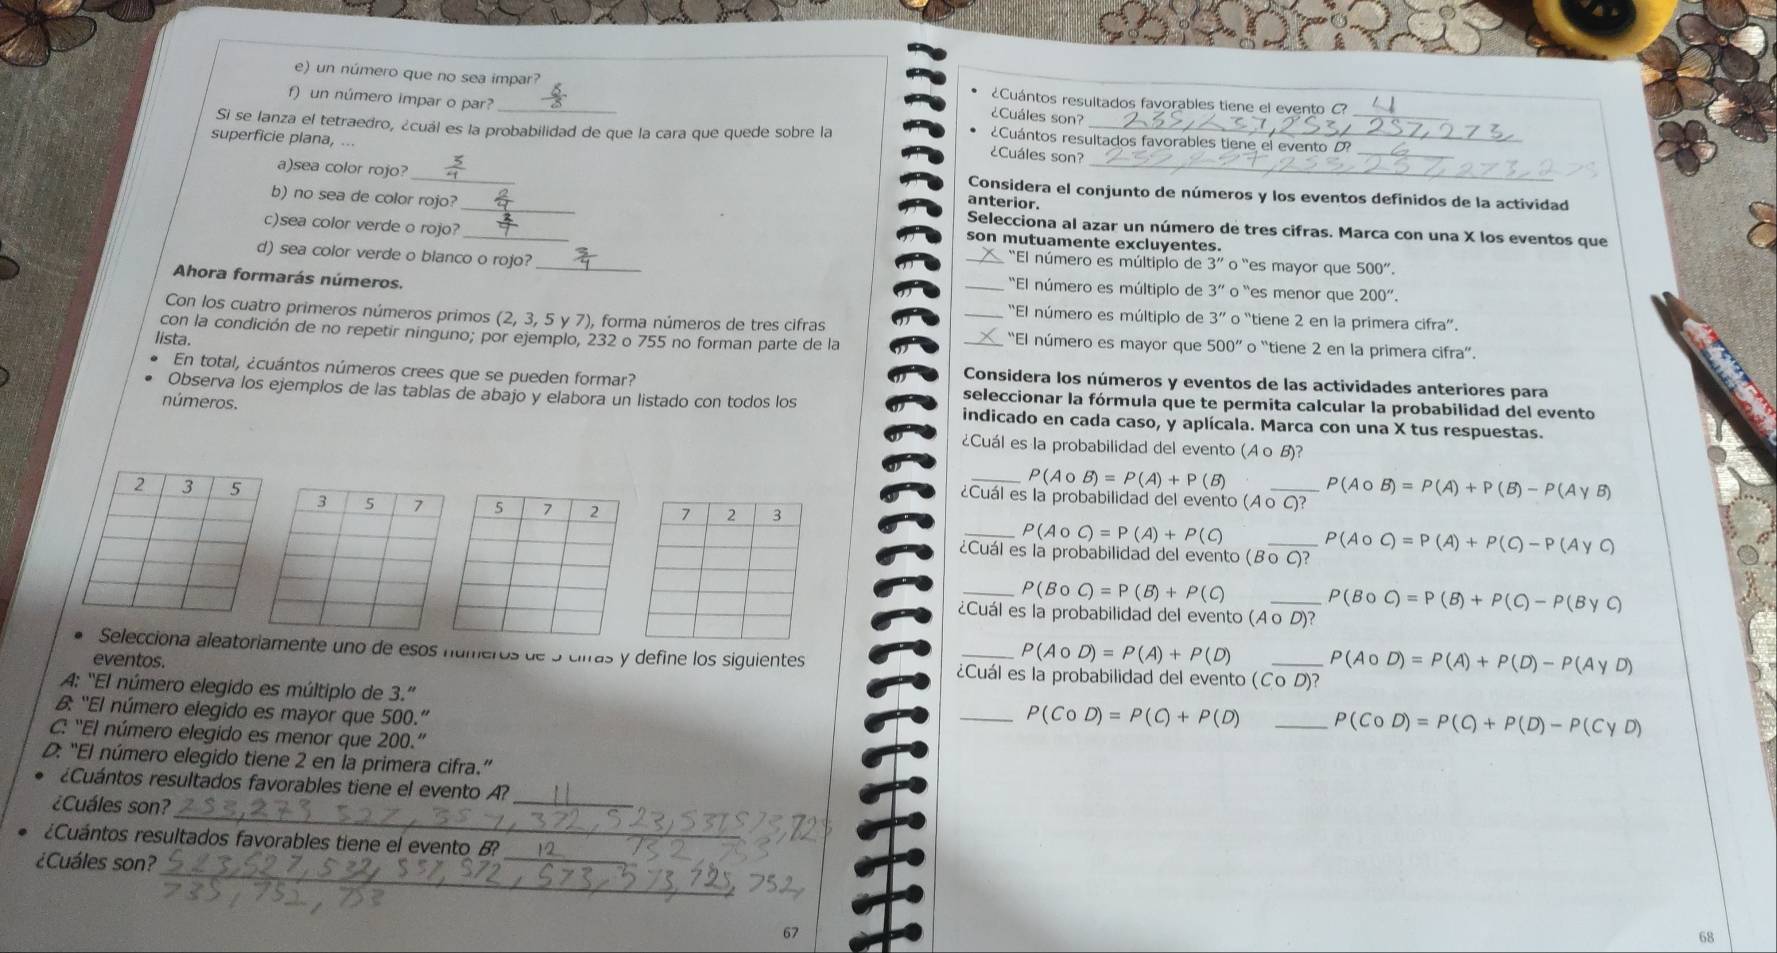 e) un número que no sea impar?
f) un número impar o par?
Si se lanza el tetraedro, ¿cuál es la probabilidad de que la cara que quede sobre la
superficie plana, ...
a)sea color rojo?
b) no sea de color rojo?
c)sea color verde o rojo?
d) sea color verde o blanco o rojo?
Ahora formarás números.
Con los cuatro primeros números primos (2, 3, 5 y 7), forma números de tres cifras
con la condición de no repetir ninguno; por ejemplo, 232 o 755 no forman parte de la
lista.
• En total, ¿cuántos números crees que se pueden formar?
• Observa los ejemplos de las tablas de abajo y elabora un listado con todos los
números.
2 3 5
3 5 7
5 7 2
7 2 3
• Selecciona aleatoriamente uno de esos números de 3 cifras y define los siguientes
eventos.
A: "El número elegido es múltiplo de 3."
B: "El número elegido es mayor que 500."
C: "El número elegido es menor que 200."
D: "El número elegido tiene 2 en la primera cifra."
• ¿Cuántos resultados favorables tiene el evento A? 11
¿Cuáles son? 253, 273, 527, 357, 372, 523, 537, 573, 723
732, 753
• ¿Cuántos resultados favorables tiene el evento B? 12
¿Cuáles son? 523, 527, 532, 537, 572, 573, 725, 752,
735, 752, 753
67
• ¿Cuántos resultados favorables tiene el evento C? 4
¿Cuáles son? 235, 237, 253, 257, 273
• ¿Cuántos resultados favorables tiene el evento D? 6
¿Cuáles son? 235, 237, 253, 257, 273, 275
Considera el conjunto de números y los eventos definidos de la actividad
anterior.
Selecciona al azar un número de tres cifras. Marca con una X los eventos que
son mutuamente excluyentes.
X "El número es múltiplo de 3" o "es mayor que 500".
"El número es múltiplo de 3" o "es menor que 200".
"El número es múltiplo de 3" o "tiene 2 en la primera cifra".
X "El número es mayor que 500" o "tiene 2 en la primera cifra".
Considera los números y eventos de las actividades anteriores para
seleccionar la fórmula que te permita calcular la probabilidad del evento
indicado en cada caso, y aplícala. Marca con una X tus respuestas.
¿Cuál es la probabilidad del evento (A o B)?
P(A o B) = P(A) + P(B) P(A o B) = P(A) + P(B) − P(A y B)
¿Cuál es la probabilidad del evento (A o C)?
P(A o C) = P(A) + P(C) P(A o C) = P(A) + P(C) − P(A y C)
¿Cuál es la probabilidad del evento (B o C)?
P(B o C) = P(B) + P(C) P(B o C) = P(B) + P(C) − P(B y C)
¿Cuál es la probabilidad del evento (A o D)?
P(A o D) = P(A) + P(D) P(A o D) = P(A) + P(D) − P(A y D)
¿Cuál es la probabilidad del evento (C o D)?
P(C o D) = P(C) + P(D) P(C o D) = P(C) + P(D) − P(C y D)
68